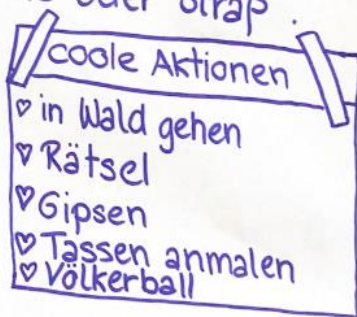 oder Strap.
coole Aktionen
♡ in Wald gehen
♡ Rätsel
♡ Gipsen
♡ Tassen anmalen
♡ Völkerball